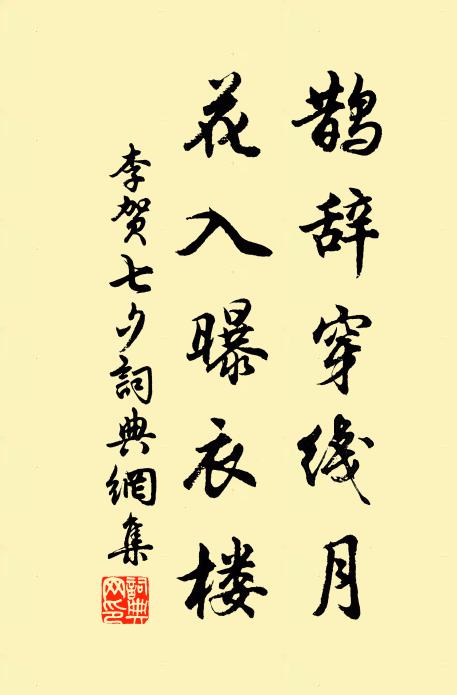 鹊辞穿线月
花入曝衣楼
李贺七夕詞典網集
詞典
网印